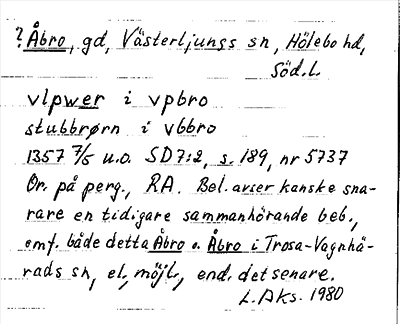 ? Åbro, gd, Västerljungs sn, Hölebo hd,
Söd.l.
vlpwer i vpbro
stubbrørn i vbbro
1357 7/5 u.o. SD7:2, s. 189, nr 5737
Or. på perg., RA. Bel. avser kanske sna-
rare en tidigare sammanhörande beb.,
omf. både detta Åbro o. Åbro i Trosa-Vagnhä-
rads sn, el., möjl., end. det senare.
L.Aks. 1980